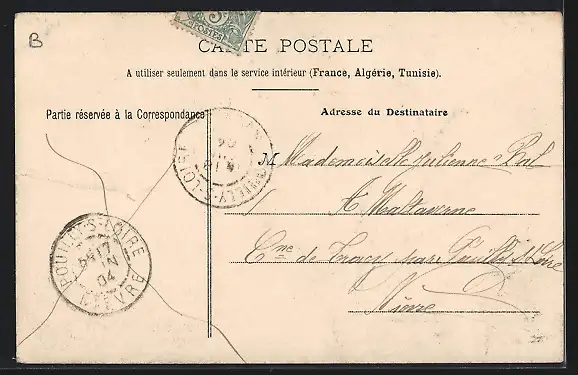 B
5c
POSTES
CARTE POSTALE
A utiliser seulement dans le service intérieur (France, Algérie, Tunisie).
Partie réservée à la Correspondance
Adresse du Destinataire
M Mademoiselle Julienne
à Maltaverne
Cne de Tracy sur Pouilly s/ Loire
Nièvre
POUILLY-S-LOIRE
17
04
NIEVRE